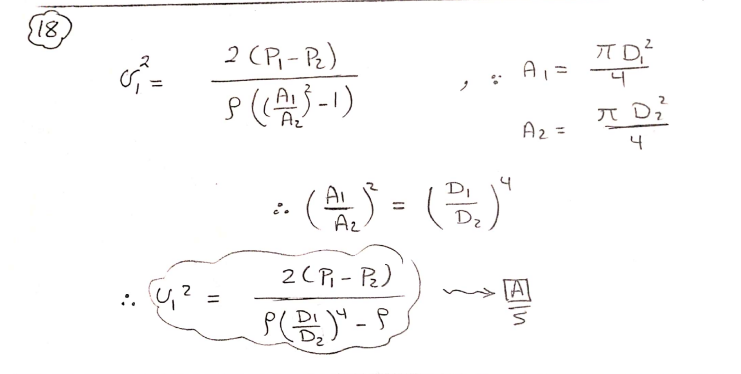 18
υ₁² = 2(P₁-P₂) / ρ((A₁/A₂)²-1) , ∵ A₁ = πD₁²/4
A₂ = πD₂²/4
∴ (A₁/A₂)² = (D₁/D₂)⁴
∴ υ₁² = 2(P₁-P₂) / ρ(D₁/D₂)⁴-ρ → A/5